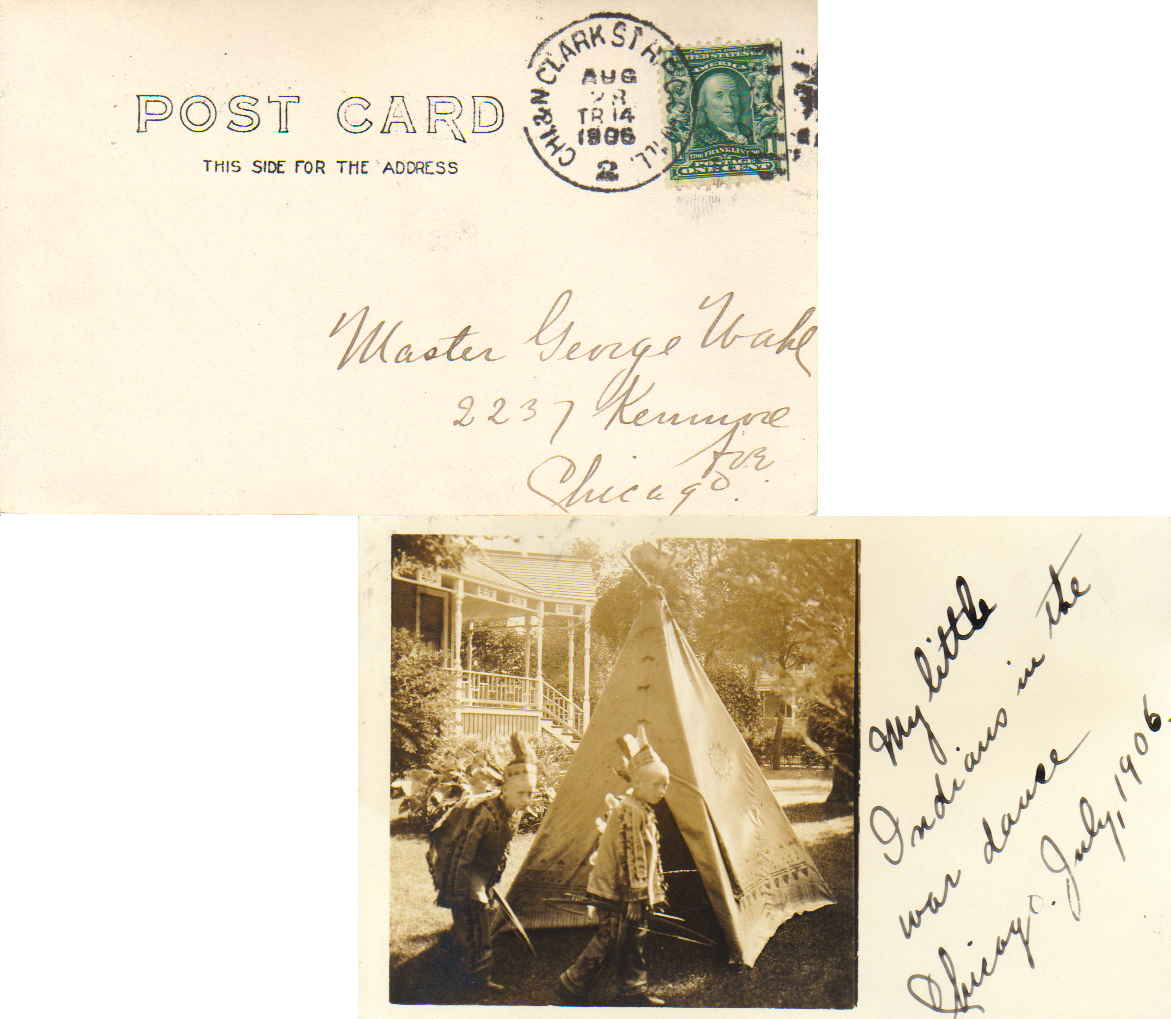 POST CARD
THIS SIDE FOR THE ADDRESS
CHI. & N CLARK ST R.P.O. ILL.
AUG
28
TR 14
1906
2
UNITED STATES OF
AMERICA
FRANKLIN
POSTAGE
ONE CENT
Master George Wahl
2237 Kenmore
Ave
Chicago.
My little
Indians in the
war dance
Chicago. July, 1906.